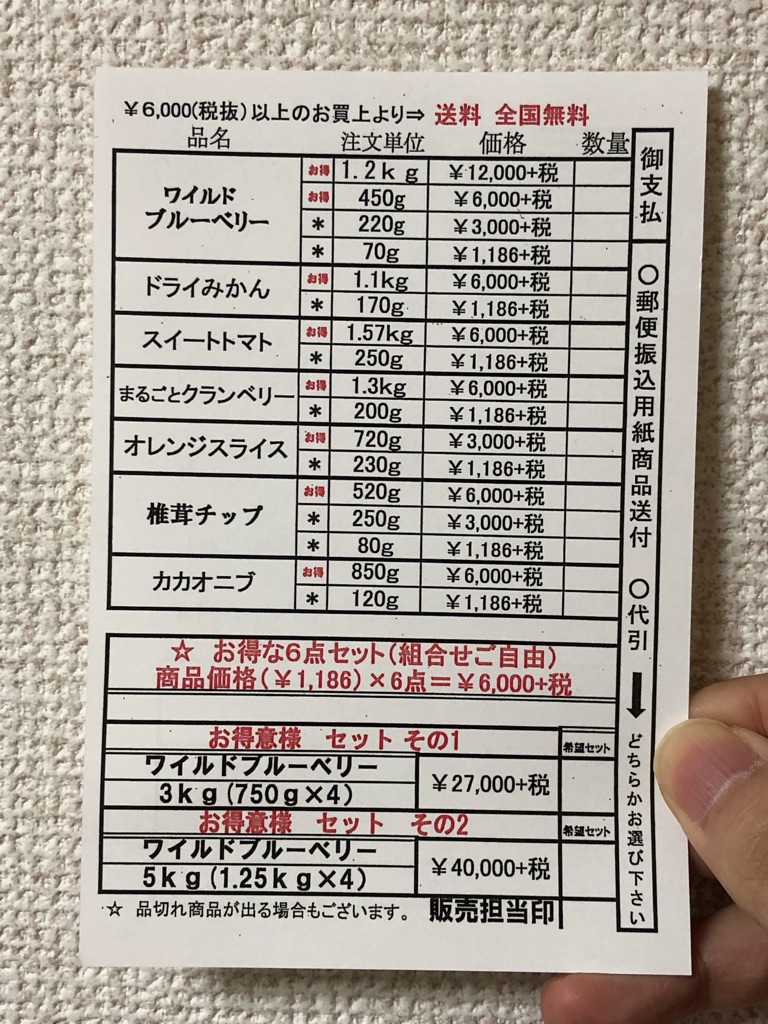 ￥6,000(税抜)以上のお買上より⇒ 送料 全国無料
品名 注文単位 価格 数量
ワイルド
ブルーベリー
お得 1.2kg ￥12,000+税
お得 450g ￥6,000+税
* 220g ￥3,000+税
* 70g ￥1,186+税
ドライみかん
お得 1.1kg ￥6,000+税
* 170g ￥1,186+税
スイートトマト
お得 1.57kg ￥6,000+税
* 250g ￥1,186+税
まるごとクランベリー
お得 1.3kg ￥6,000+税
* 200g ￥1,186+税
オレンジスライス
お得 720g ￥3,000+税
* 230g ￥1,186+税
椎茸チップ
お得 520g ￥6,000+税
* 250g ￥3,000+税
* 80g ￥1,186+税
カカオニブ
お得 850g ￥6,000+税
* 120g ￥1,186+税
☆ お得な6点セット(組合せご自由)
商品価格(￥1,186)×6点＝￥6,000+税
お得意様 セット その1 希望セット
ワイルドブルーベリー
3kg(750g×4) ￥27,000+税
お得意様 セット その2 希望セット
ワイルドブルーベリー
5kg(1.25kg×4) ￥40,000+税
☆ 品切れ商品が出る場合もございます。 販売担当印
御支払
○郵便振込用紙商品送付 ○代引 ➡どちらかお選び下さい